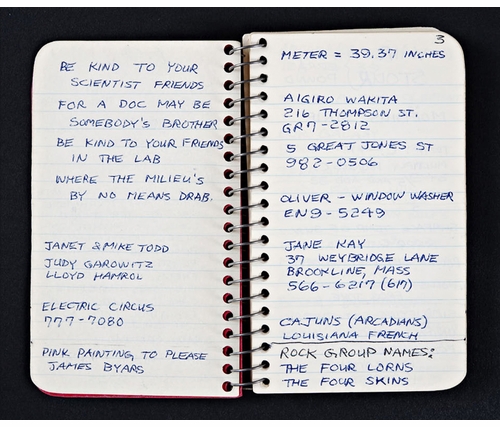 BE KIND TO YOUR
SCIENTIST FRIENDS
FOR A DOC MAY BE
SOMEBODY'S BROTHER
BE KIND TO YOUR FRIENDS
IN THE LAB
WHERE THE MILIEU'S
BY NO MEANS DRAB.
JANET & MIKE TODD
JUDY GAROWITZ
LLOYD HAMROL
ELECTRIC CIRCUS
777-7080
PINK PAINTING TO PLEASE
JAMES BYARS
3
METER = 39.37 INCHES
AIGIRO WAKITA
216 THOMPSON ST.
GR7-2812
5 GREAT JONES ST
982-0506
OLIVER - WINDOW WASHER
EN9-5249
JANE KAY
37 WEYBRIDGE LANE
BROOKLINE, MASS
566-6217 (617)
CAJUNS (ARCADIANS)
LOUISIANA FRENCH
ROCK GROUP NAMES:
THE FOUR LORNS
THE FOUR SKINS